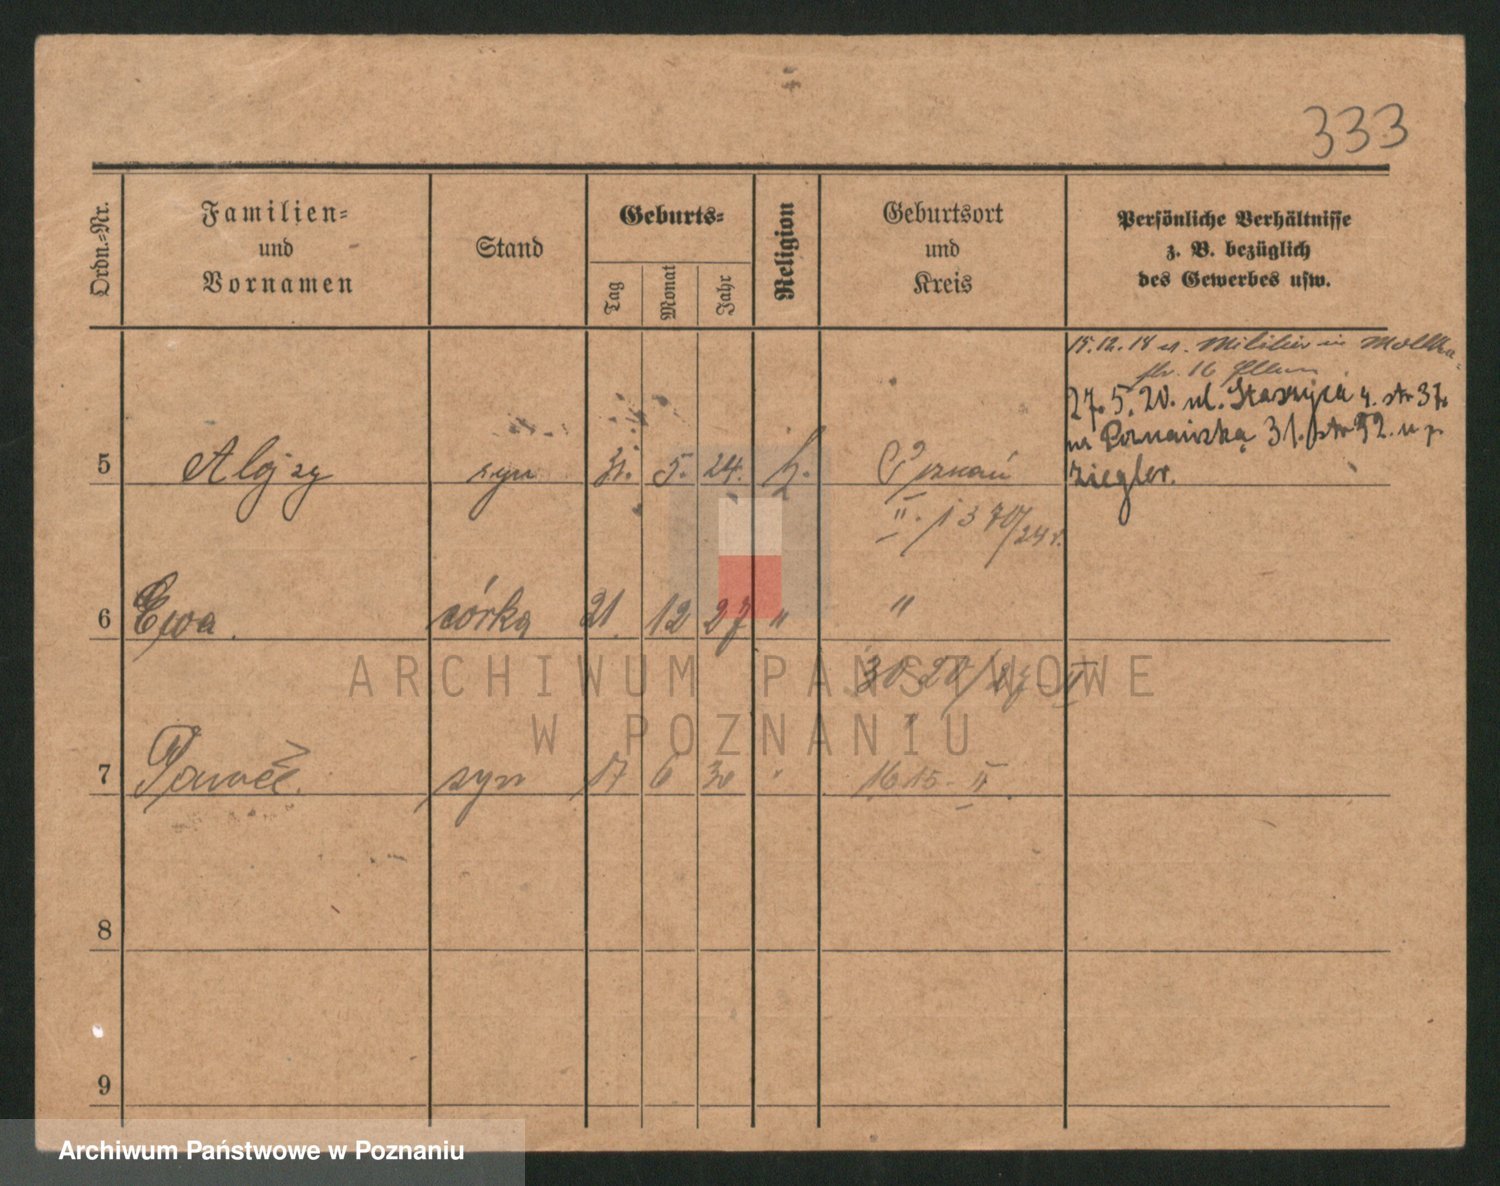 333
Ordn.=Nr.
Familien=
und
Vornamen
Stand
Geburts=
Tag
Monat
Jahr
Religion
Geburtsort
und
Kreis
Persönliche Verhältnisse
z. B. bezüglich
des Gewerbes usw.
Militär in
str. 16
27. 5. 20. ul. Staszyca 4. str 37.
Poznańską 31. str 52. u p.
Ziegler.
5 Alojzy syn 31. 5. 24. k. Poznań
II. 1370/24 r.
6 Ewa. córka 21. 12 27 " "
3020/27 II
7 Paweł. syn 17 6 30 " "
1615 - II.
8
9
ARCHIWUM PAŃSTWOWE
W POZNANIU
Archiwum Państwowe w Poznaniu